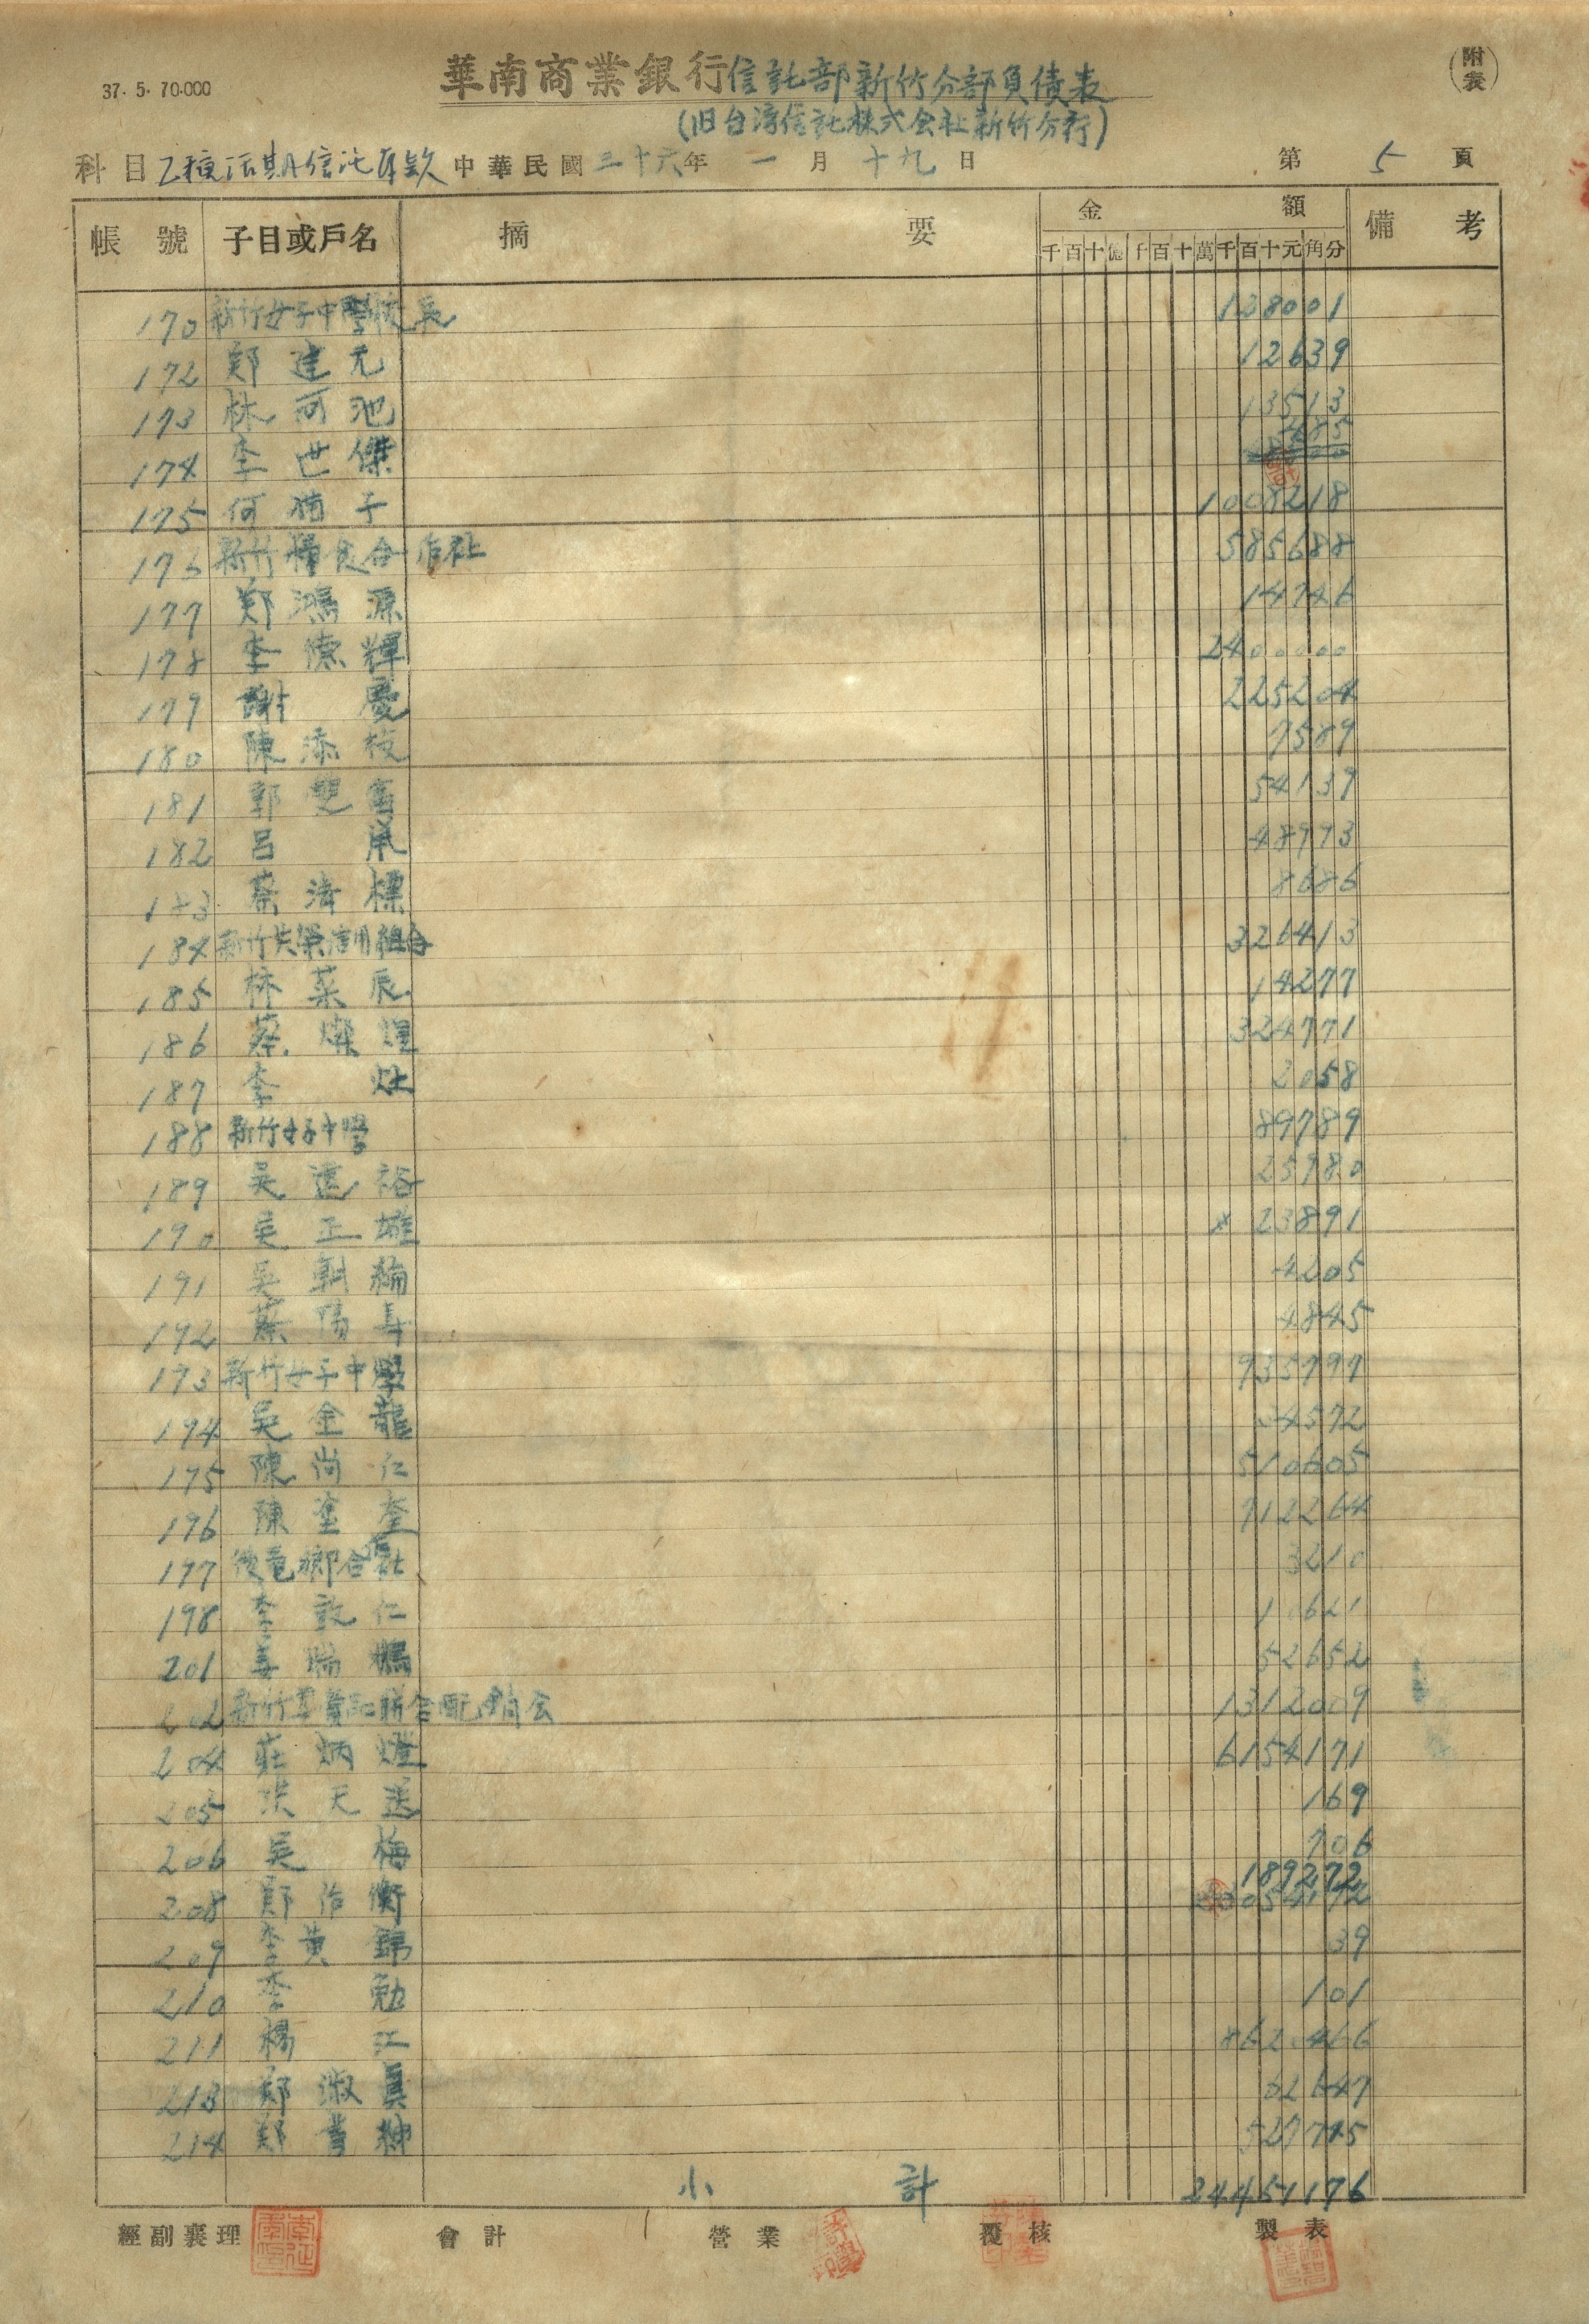 37. 5. 70.000
華南商業銀行信託部新竹分部負債表
(附表)
(旧台湾信託株式会社新竹分行)
科目 乙種活期信託存款 中華民國三十六年一月十九日 第5頁
帳號 子目或戶名 摘要 金額 備考
千百十億千百十萬千百十元角分
170 新竹女子中學校長 138001
172 鄭建元 12639
173 林河池 13513
174 李世傑 485
175 何猶子 1008218
176 新竹糧食合作社 585688
177 鄭鴻源 14746
178 李德輝 2400000
179 謝慶 225204
180 陳添枝 7589
181 郭雙富 54139
182 呂 48993
183 蔡清標 8686
184 新竹共榮信用組合 326413
185 林菜辰 14277
186 蔡燦煌 324771
187 李灶 2058
188 新竹女子中學 89789
189 吳進裕 25980
190 吳正雄 23891
191 吳朝綸 4205
192 蔡陽 4845
193 新竹女子中學 935797
194 吳金龍 34572
195 陳尚仁 510605
196 陳塗奎 712264
197 後龍鄉合作社 3210
198 李敦仁 10621
201 姜瑞鵬 52652
202 新竹 聯合配銷会 1312009
204 莊炳燈 6154171
205 洪天送 169
206 吳梅 706
189272
208 鄭作衡
209 李黃錦 39
210 李勉 101
211 楊江 8620466
213 鄭淑真 62647
214 鄭 紳 527745
小計 24451176
經副襄理 會計 營業 覆核 製表